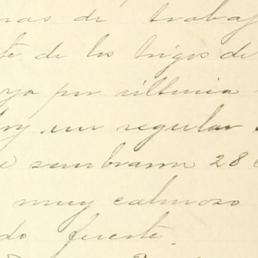 de trabaj
te de los trigos de
ya por última
hoy un regular
e sembraron 28
muy caluroso
do fuerte.